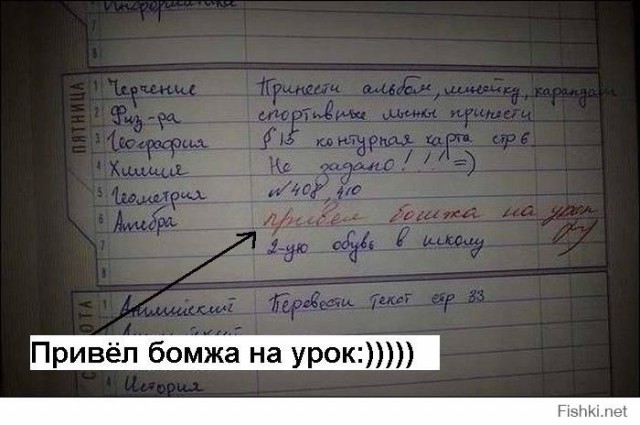 Информатика
7
8
ПЯТНИЦА
1 Черчение Принести альбом, линейку, карандаш
2 Физ-ра спортивные лыжы принести
3 География § 15 контурная карта стр 6
4 Химия Не задано!!!! =)
5 Геометрия №408, 410
6 Алгебра привёл бомжа на урок
7 2-ую обувь в школу
8
1 Английский Перевести текст стр 33
Привёл бомжа на урок:)))))
4 История
Fishki.net